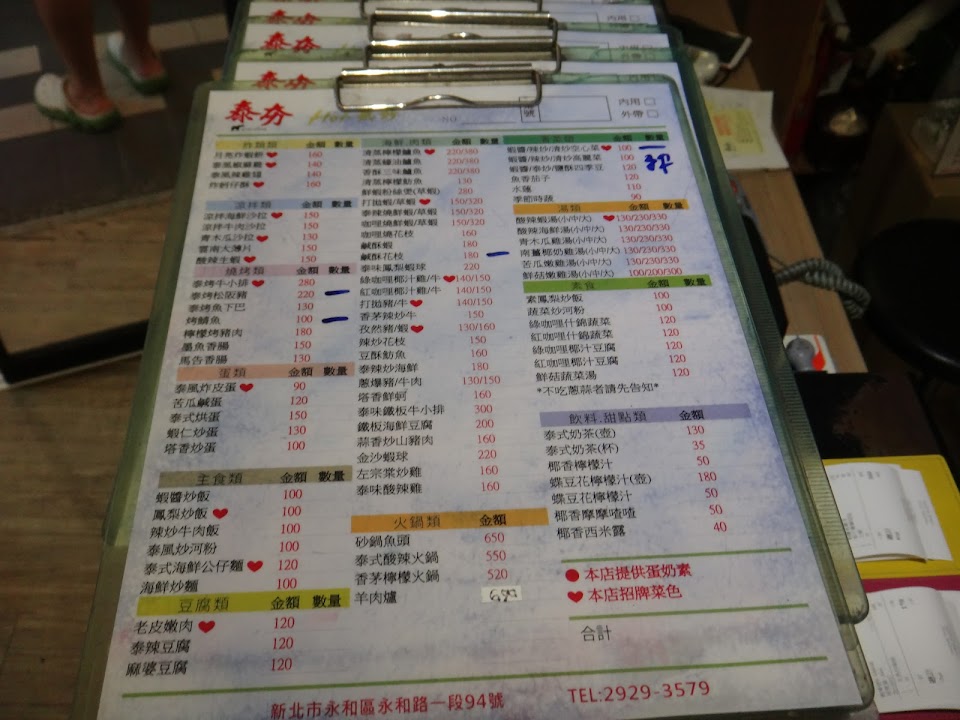 泰夯
泰夯
泰夯
泰夯
號
內用□
外帶□
炸類類 金額 數量
月亮炸蝦餅 ♥ 160
泰風椒麻雞 ♥ 140
泰風辣雞翅 140
炸蚵仔酥 ♥ 160
涼拌類 金額 數量
涼拌海鮮沙拉 ♥ 150
涼拌牛肉沙拉 150
青木瓜沙拉 ♥ 130
雲南大薄片 150
酸辣生蝦 ♥ 150
燒烤類 金額 數量
泰烤牛小排 ♥ 280
泰烤松阪豬 220
泰烤魚下巴 130
烤鯖魚 100
檸檬烤豬肉 180
墨魚香腸 150
馬告香腸 130
蛋類 金額 數量
泰風炸皮蛋 ♥ 90
苦瓜鹹蛋 120
泰式烘蛋 150
蝦仁炒蛋 130
塔香炒蛋 100
主食類 金額 數量
蝦醬炒飯 100
鳳梨炒飯 ♥ 100
辣炒牛肉飯 100
泰風炒河粉 100
泰式海鮮公仔麵 ♥ 120
海鮮炒麵 100
豆腐類 金額 數量
老皮嫩肉 ♥ 120
泰辣豆腐 120
麻婆豆腐 120
海鮮.肉類 金額 數量
清蒸檸檬鱸魚 ♥ 220/380
清蒸蠔油鱸魚 220/380
香酥三味鱸魚 220/380
清蒸檸檬魴魚 130
鮮蝦粉絲煲(草蝦) 280
打拋蝦/草蝦 ♥ 150/320
泰辣燒鮮蝦/草蝦 150/320
咖哩燒鮮蝦/草蝦 150/320
咖哩燒花枝 160
鹹酥蝦 180
鹹酥花枝 180
泰味鳳梨蝦球 220
綠咖哩椰汁雞/牛 ♥ 140/150
紅咖哩椰汁雞/牛 140/150
打拋豬/牛 ♥ 140/150
香茅辣炒牛 150
孜然豬/蝦 ♥ 130/160
辣炒花枝 150
豆酥魴魚 160
泰辣炒海鮮 180
蔥爆豬/牛肉 130/150
塔香鮮蚵 160
泰味鐵板牛小排 300
鐵板海鮮豆腐 200
蒜香炒山豬肉 160
金沙蝦球 220
左宗棠炒雞 160
泰味酸辣雞 160
火鍋類 金額
砂鍋魚頭 650
泰式酸辣火鍋 550
香茅檸檬火鍋 520
羊肉爐
金額 數量
蝦醬/辣炒/清炒空心菜 ♥ 100
蝦醬/辣炒/清炒高麗菜 100
蝦醬/泰炒/鹽酥四季豆 120
魚香茄子 120
水蓮 110
季節時蔬 90
湯類 金額 數量
酸辣蝦湯(小/中/大) ♥ 130/230/330
酸辣海鮮湯(小/中/大) 130/230/330
青木瓜雞湯(小/中/大) 130/230/330
南薑椰奶雞湯(小/中/大) 130/230/330
苦瓜嫩雞湯(小/中/大) 130/230/330
鮮菇嫩雞湯(小/中/大) 100/200/300
素食 金額 數量
素鳳梨炒飯 100
蔬菜炒河粉 100
綠咖哩什錦蔬菜 120
紅咖哩什錦蔬菜 120
綠咖哩椰汁豆腐 120
紅咖哩椰汁豆腐 120
鮮菇蔬菜湯 120
*不吃蔥蒜者請先告知*
飲料.甜點類 金額
泰式奶茶(壺) 130
泰式奶茶(杯) 35
椰香檸檬汁 50
蝶豆花檸檬汁(壺) 180
蝶豆花檸檬汁 50
椰香摩摩喳喳 50
椰香西米露 40
●本店提供蛋奶素
♥本店招牌菜色
合計
新北市永和區永和路一段94號 TEL:2929-3579